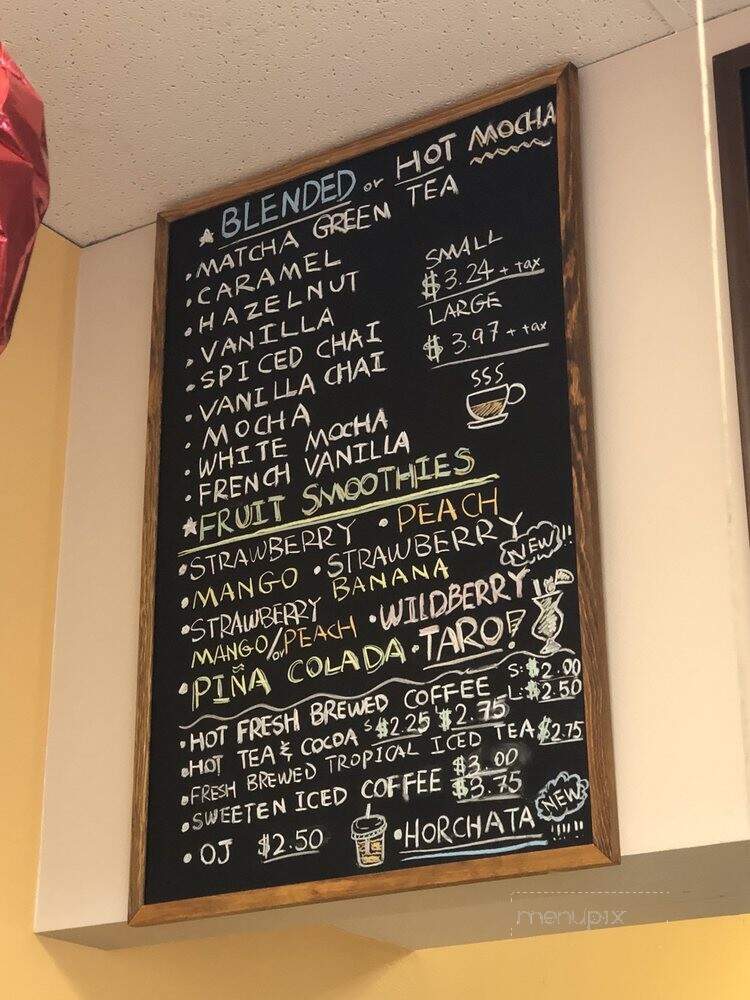 ★ BLENDED or HOT MOCHA
• MATCHA GREEN TEA
• CARAMEL
• HAZELNUT
• VANILLA
• SPICED CHAI
• VANILLA CHAI
• MOCHA
• WHITE MOCHA
• FRENCH VANILLA
SMALL
$3.24 + tax
LARGE
$3.97 + tax
★ FRUIT SMOOTHIES
• STRAWBERRY • PEACH
• MANGO • STRAWBERRY BANANA NEW!!
• STRAWBERRY MANGO/or PEACH • WILDBERRY
• PIÑA COLADA • TARO!
• HOT FRESH BREWED COFFEE S: $2.00 L: $2.50
• HOT TEA & COCOA S $2.25 L $2.75
• FRESH BREWED TROPICAL ICED TEA $2.75
• SWEETEN ICED COFFEE $3.00 $3.75
• OJ $2.50 • HORCHATA NEW!!!!!
menupix